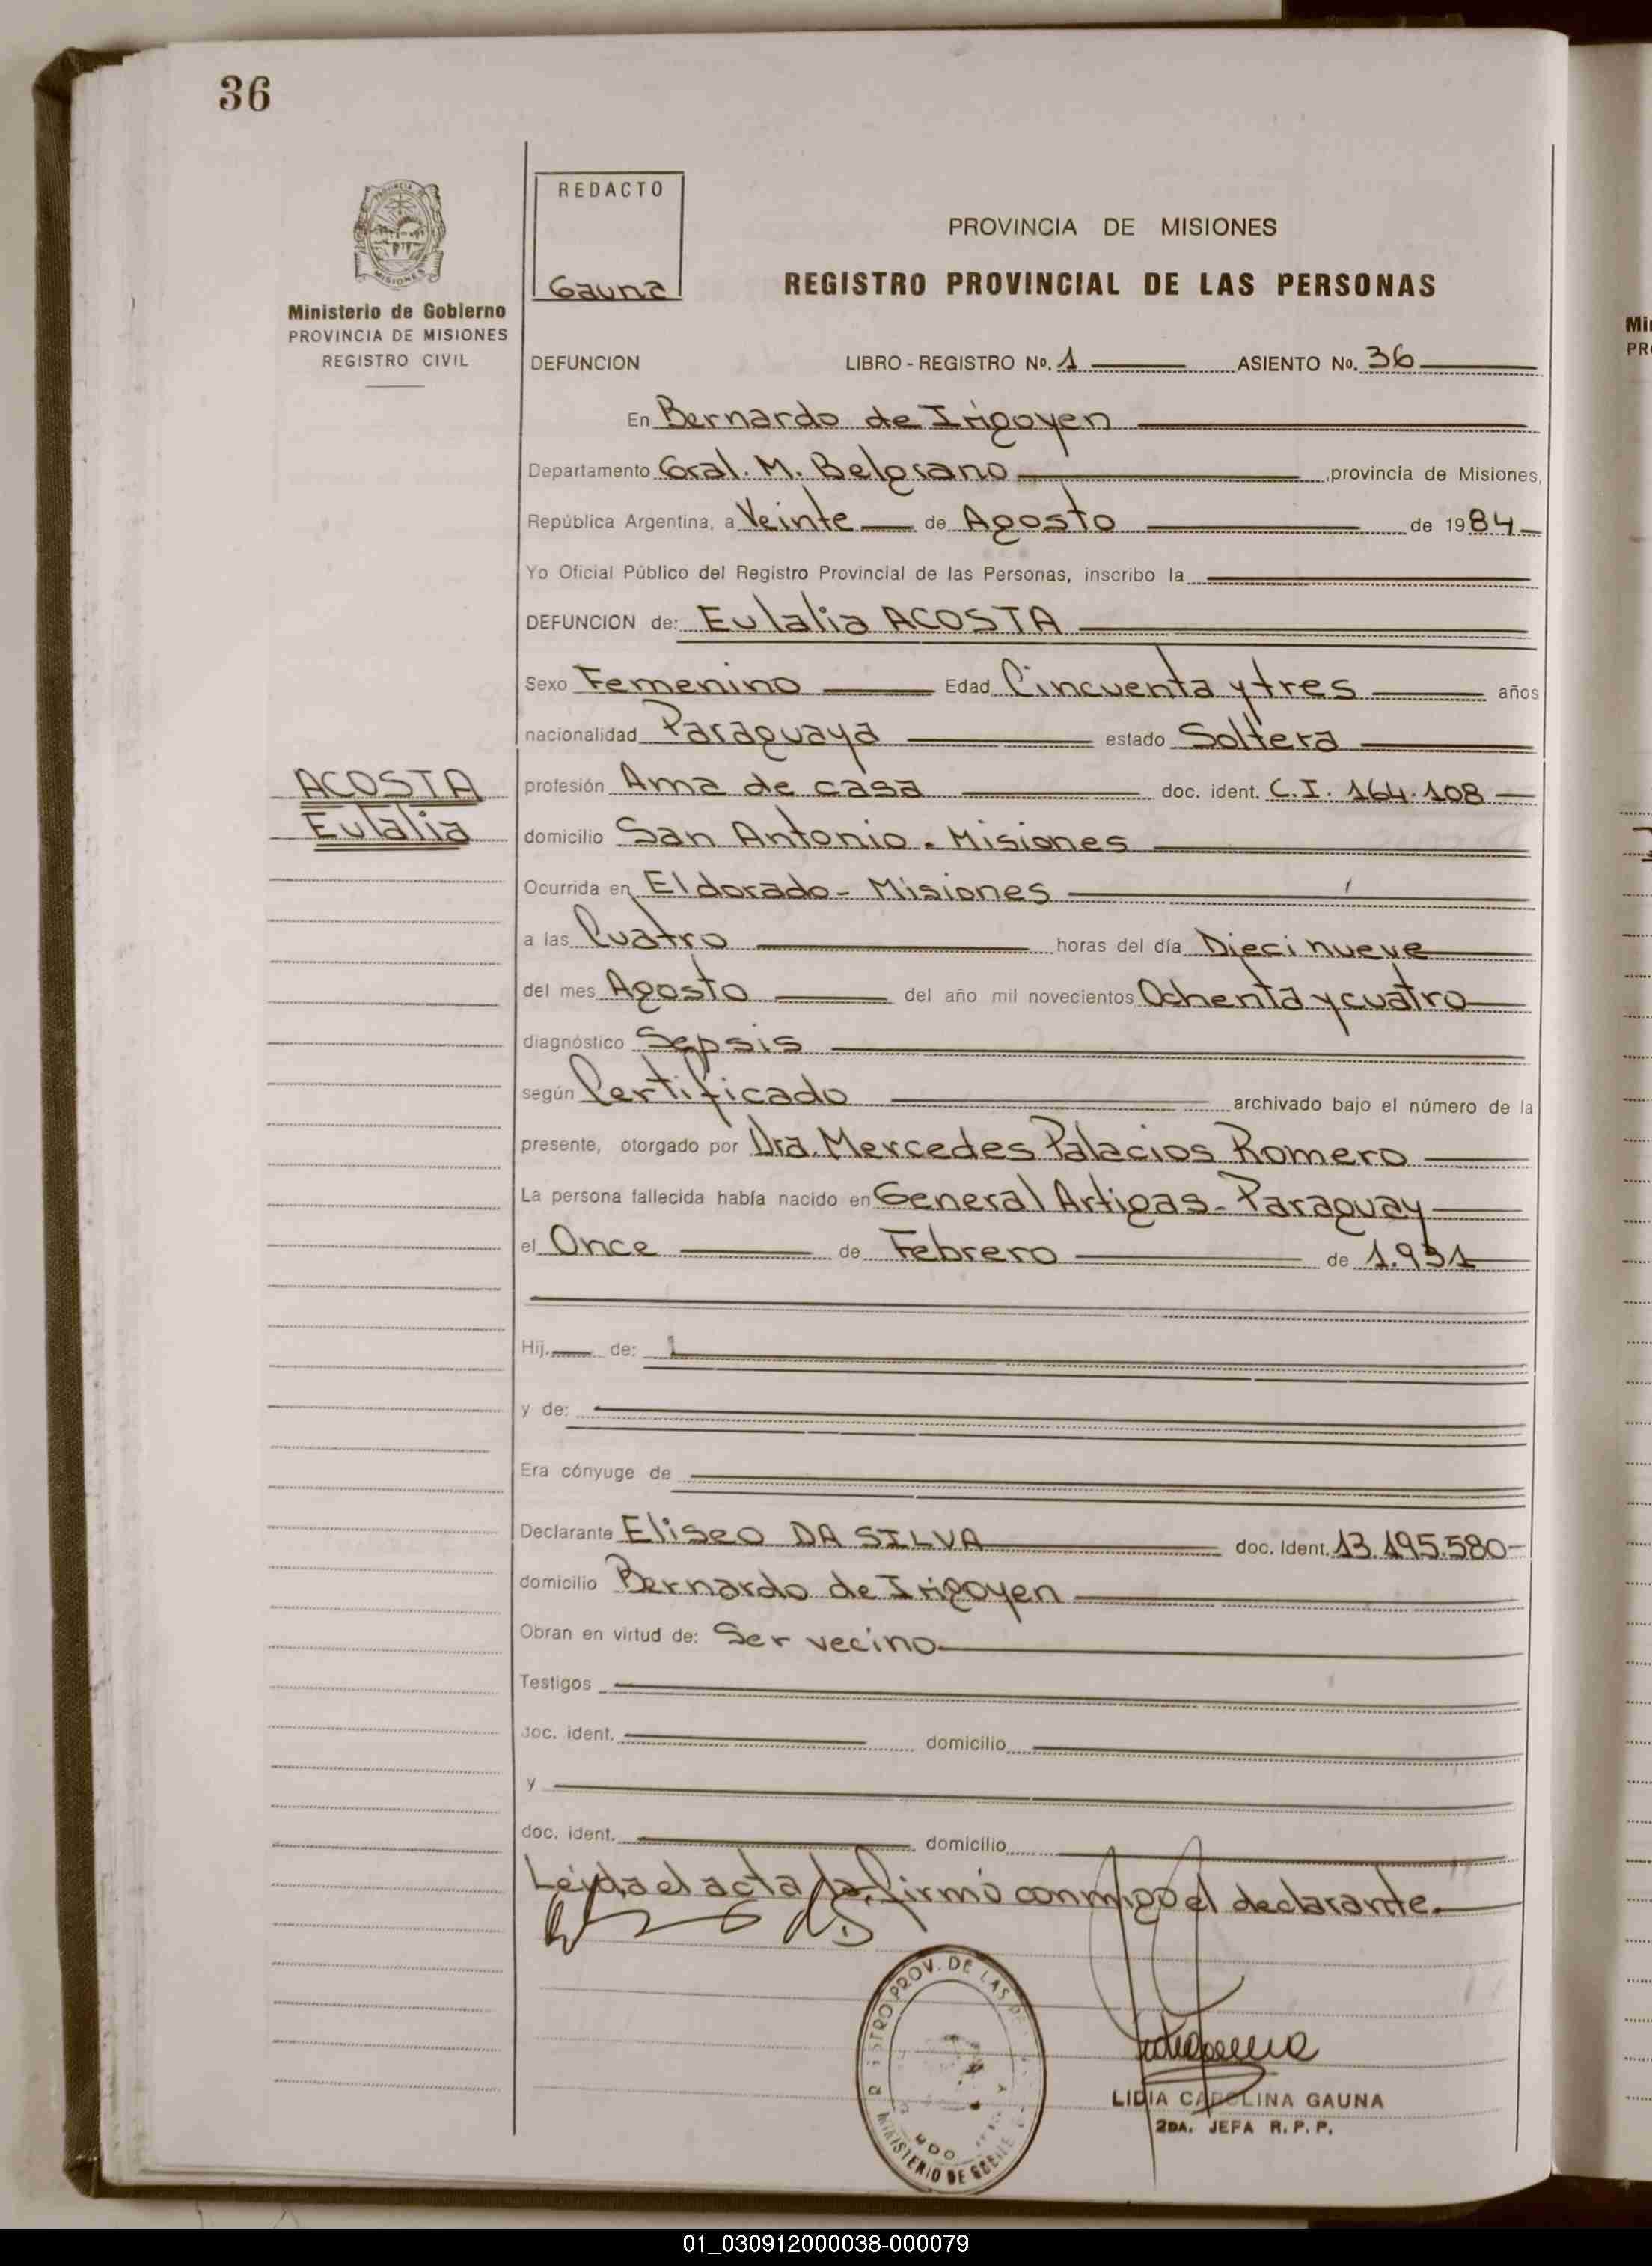 36
REDACTO
Gauna
PROVINCIA DE MISIONES
REGISTRO PROVINCIAL DE LAS PERSONAS
Ministerio de Gobierno
PROVINCIA DE MISIONES
REGISTRO CIVIL
DEFUNCION LIBRO - REGISTRO Nº. 1 ASIENTO No. 36
En Bernardo de Irigoyen
Departamento Gral. M. Belgrano provincia de Misiones,
República Argentina, a Veinte de Agosto de 1984
Yo Oficial Público del Registro Provincial de las Personas, inscribo la
DEFUNCION de: Eulalia ACOSTA
Sexo Femenino Edad Cincuenta y tres años
nacionalidad Paraguaya estado Soltera
ACOSTA
Eulalia
profesión Ama de casa doc. ident. C.I. 164.108
domicilio San Antonio. Misiones
Ocurrida en Eldorado - Misiones
a las Cuatro horas del día Diecinueve
del mes Agosto del año mil novecientos Ochenta y cuatro
diagnóstico Sepsis
según Certificado archivado bajo el número de la
presente, otorgado por Dra. Mercedes Palacios Romero
La persona fallecida había nacido en General Artigas - Paraguay
el Once de Febrero de 1.931
Hij. de:
y de:
Era cónyuge de
Declarante Eliseo DA SILVA doc. Ident. 13.195.580
domicilio Bernardo de Irigoyen
Obran en virtud de: Ser vecino
Testigos
doc. ident. domicilio
y
doc. ident. domicilio
Leída el acta la firmó conmigo el declarante.
PROV. DE LAS
MINISTERIO DE
LIDIA CAROLINA GAUNA
2DA. JEFA R.P.P.
Mi
PR
01_030912000038-000079